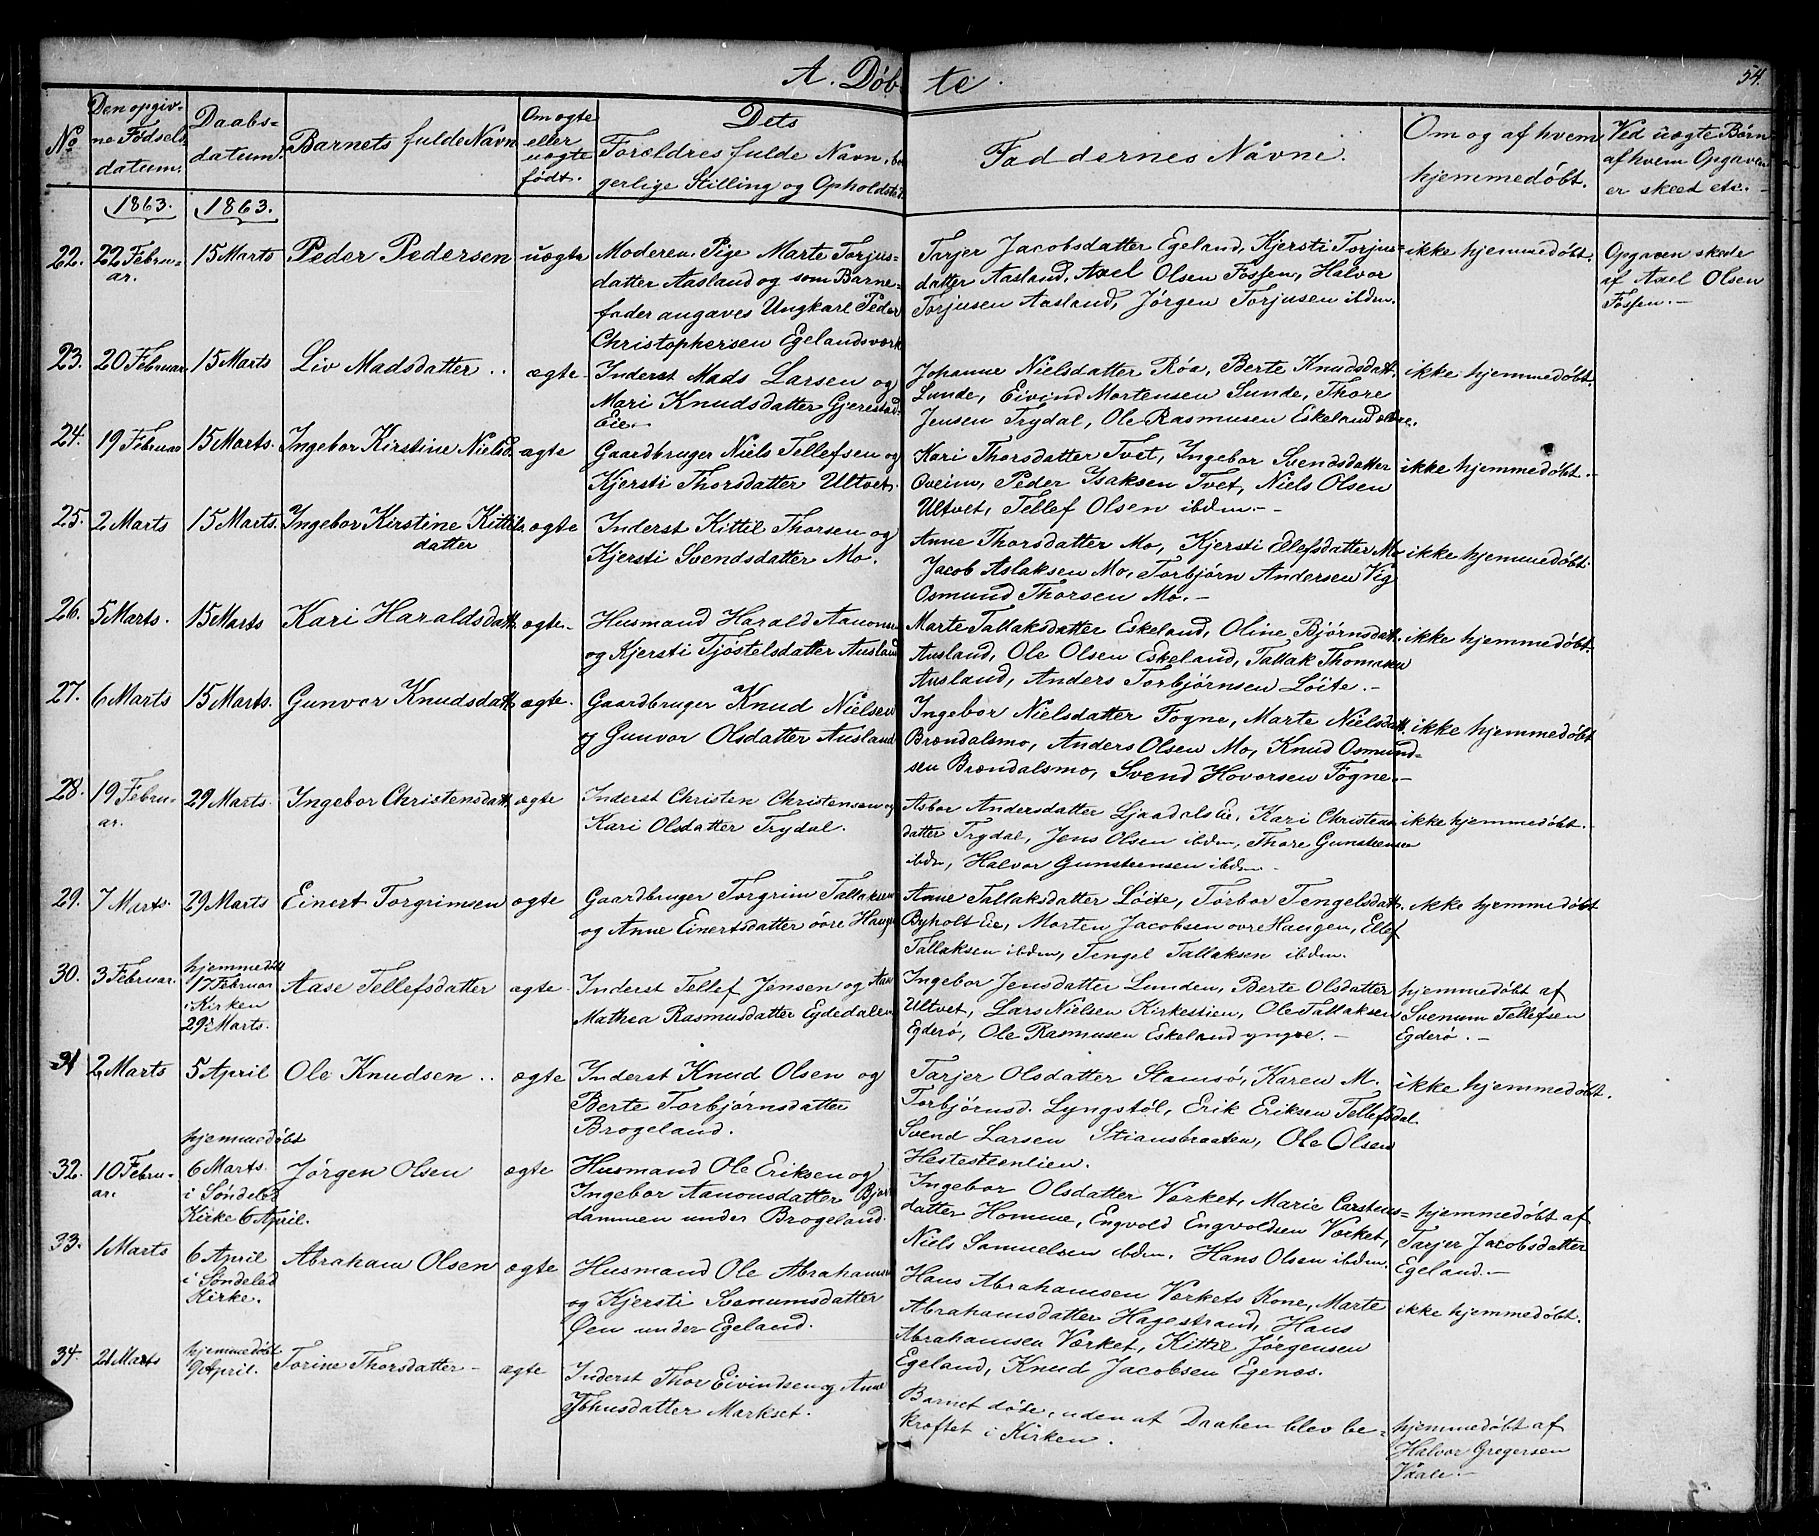 A. Døbte.
54.
No
Den opgivne Fødselsdatum.
Daabsdatum.
Barnets fulde Navn
Om ægte eller uægte født.
Dets Forældres fulde Navn, borgerlige Stilling og Opholdsted
Faddernes Navne.
Om og af hvem hjemmedøbt.
Ved uægte Børn af hvem Opgaven er skeet etc.
1863. 1863.
22. 22 Febru- 15 Marts Peder Pedersen uægte
ar.
Moderen Pige Marte Torjus-
datter Aasland og som Barne-
fader angaves Ungkarl Peder
Christophersen Egelandsværk
Tarjer Jacobsdatter Egeland, Kjersti Torjus-
datter Aasland, Axel Olsen Fossen, Halvor
Torjusen Aasland, Jørgen Torjusen ibdm.
ikke hjemmedøbt.
Opgaven skede
af Axel Olsen
Fossen.-
23. 20 Februar 15 Marts Liv Madsdatter .. ægte
Inderst Mads Larsen og
Mari Knudsdatter Gjerestad
Eie.
Johanne Nielsdatter Røa, Berte Knudsdatt.
Lunde, Eivind Mortensen Sunde, Thore
Jensen Trydal, Ole Rasmusen Eskeland ældre.
ikke hjemmedøbt.
24. 19 Februar 15 Marts. Ingebor Kirstine Nielsd. ægte
Gaardbruger Niels Tellefsen og
Kjersti Thorsdatter Ultvet.
Kari Thorsdatter Tvet, Ingebor Svendsdatter
Oveim, Peder Isaksen Tvet, Niels Olsen
Ultvet, Tellef Olsen ibdm.-
ikke hjemmedøbt.-
25. 2 Marts 15 Marts. Ingebor Kirstine Kittils ægte
datter
Inderst Kittil Thorsen og
Kjersti Svendsdatter Mo.
Anne Thorsdatter Mo, Kjersti Ellefsdatter Mo
Jacob Aslaksen Mo, Torbjørn Andersen Vig
Osmund Thorsen Mo.-
ikke hjemmedøbt.
26. 5 Marts. 15 Marts Kari Haraldsdatt. ægte.
Husmand Harald Aanonsen
og Kjersti Tjøstelsdatter Ausland
Marte Tallaksdatter Eskeland, Oline Bjørnsdatt.
Ausland, Ole Olsen Eskeland, Tallak Thomasen
Ausland, Anders Torbjørnsen Løite.-
ikke hjemmedøbt.
27. 6 Marts 15 Marts. Gunvor Knudsdatt. ægte.
Gaardbruger Knud Nielsen
og Gunvor Olsdatter Ausland
Ingebor Nielsdatter Fogne, Marte Nielsdatt.
Brændalsmo, Anders Olsen Mo, Knud Osmund-
sen Brændalsmo, Svend Hovorsen Fogne.-
ikke hjemmedøbt
28. 19 Febru- 29 Marts. Ingebor Christensdatt. ægte
ar.
Inderst Christen Christensen og
Kari Olsdatter Trydal.
Asbor Andersdatter Ljaadals Eie, Kari Christens-
datter Trydal, Jens Olsen ibdm, Thore Gunsteensen
ibdm, Halvor Gunsteensen ibdm.-
ikke hjemmedøbt.-
29. 7 Marts. 29 Marts Einert Torgrimsen ægte
Gaardbruger Torgrim Tallaksen
og Anne Einertsdatter øvre Haugen
Anne Tallaksdatter Løite, Torbor Tengelsdatt.
Byholt Eie, Morten Jacobsen øvre Haugen, Ellef
Tallaksen ibdm, Tengel Tallaksen ibdm.
ikke hjemmedøbt
30. 3 Februar. hjemmedøbt
17 Februar
i Kirken
29 Marts.
Aase Tellefsdatter ægte
Inderst Tellef Jensen og Ane
Mathea Rasmusdatter Eydedalen
Ingebor Jensdatter Lunden, Berte Olsdatter
Ultvet, Lars Nielsen Kirkestien, Ole Tallaksen
Egderø, Ole Rasmusen Eskeland yngre.-
hjemmedøbt af
Svenum Tellefsen
Egderø.-
31 2 Marts 5 April Ole Knudsen .. ægte
Inderst Knud Olsen og
Berte Torbjørnsdatter
Brogeland.
Tarjer Olsdatter Stamsø, Karen M.
Torbjørnsd. Lyngstøl, Erik Eriksen Tellefsdal
Svend Larsen Stiansbraaten, Ole Olsen
Hestesteenlien.
ikke hjemmedøbt.
32. 10 Febru-
ar.
hjemmedøbt
6 Marts.
i Søndeled
Kirke 6 April.
Jørgen Olsen ægte
Husmand Ole Eriksen og
Ingebor Aanonsdatter Bjør-
dammen under Brogeland.
Ingebor Olsdatter Værket, Marie Carstens-
datter Homme, Engvold Engvoldsen Værket,
Niels Samuelsen ibdm. Hans Olsen ibdm.
hjemmedøbt af
Tarjer Jacobsdatter
Egeland.-
33. 1 Marts 6 April
i Søndeled
Kirke.
Abraham Olsen ægte
Husmand Ole Abrahamsen
og Kjersti Svenumsdatter
Øen under Egeland.
Hans Abrahamsen Værkets Kone, Marte
Abrahamsdatter Hagestrand, Hans
Abrahamsen Værket, Kittil Jørgensen
Egeland, Knud Jacobsen Egenæs.
ikke hjemmedøbt.
34. 21 Marts hjemmedøbt
9 April.
Torine Thorsdatter - ægte
Inderst Thor Eivindsen og Anne
Johusdatter Markset.
Barnet døde, uden at Daaben blev be-
kræftet i Kirken.
hjemmedøbt af
Halvor Gregersen
Vaale.-